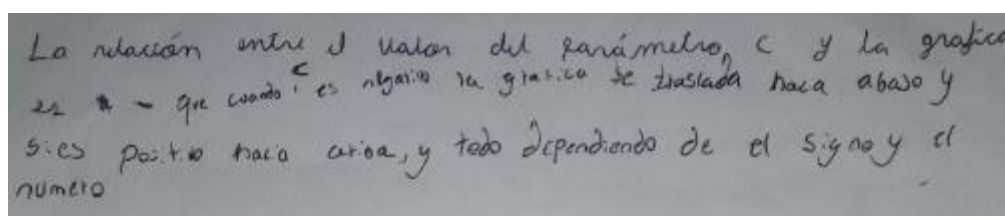 La relación entre el valor del parámetro, c y la grafica
es que cuando c es negativo la grafica se traslada hacia abajo y
si es positivo hacia arriba, y todo dependiendo de el signo y el
numero